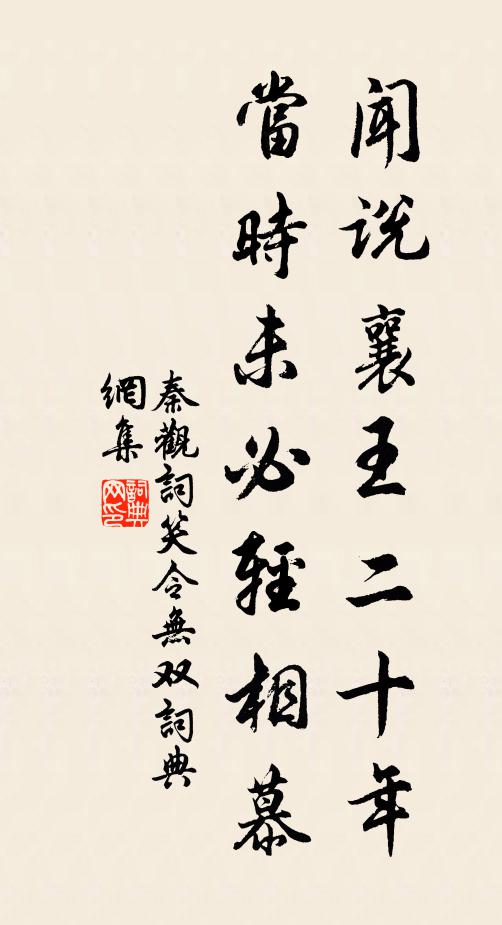 闻说襄王二十年
當時未必輕相慕
秦觀詞笑令無双詞典
網集
詞典
网印